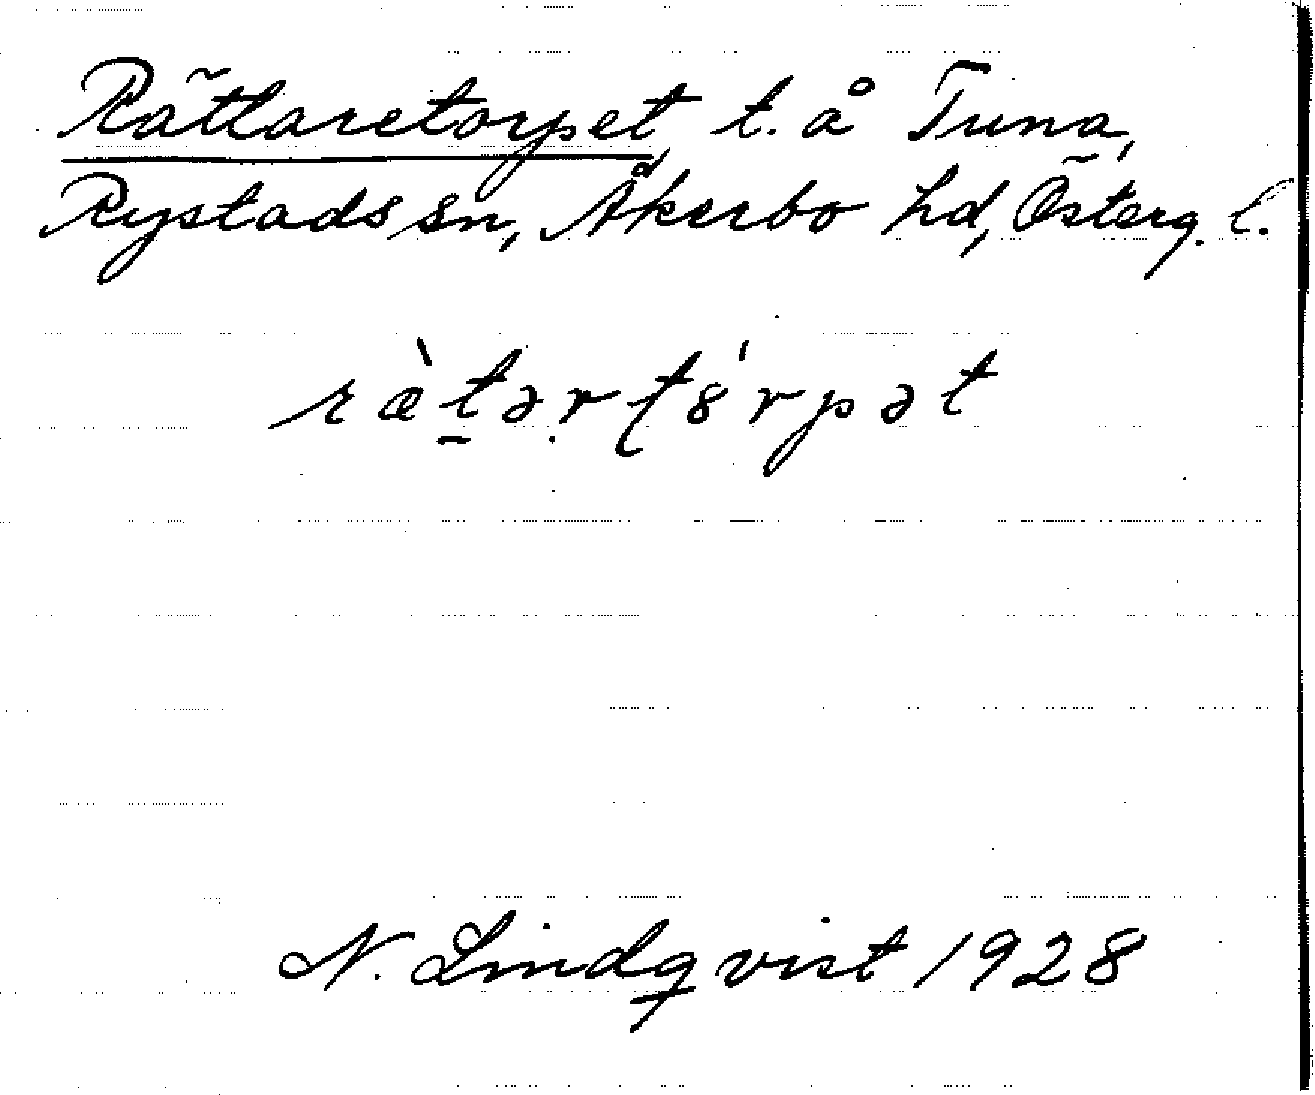 Rättaretorpet, t. å Tuna,
Rystads sn, Åkerbo hd, Österg. l.
ræ̀t̠ərʈ8́rpət
N. Lindqvist 1928